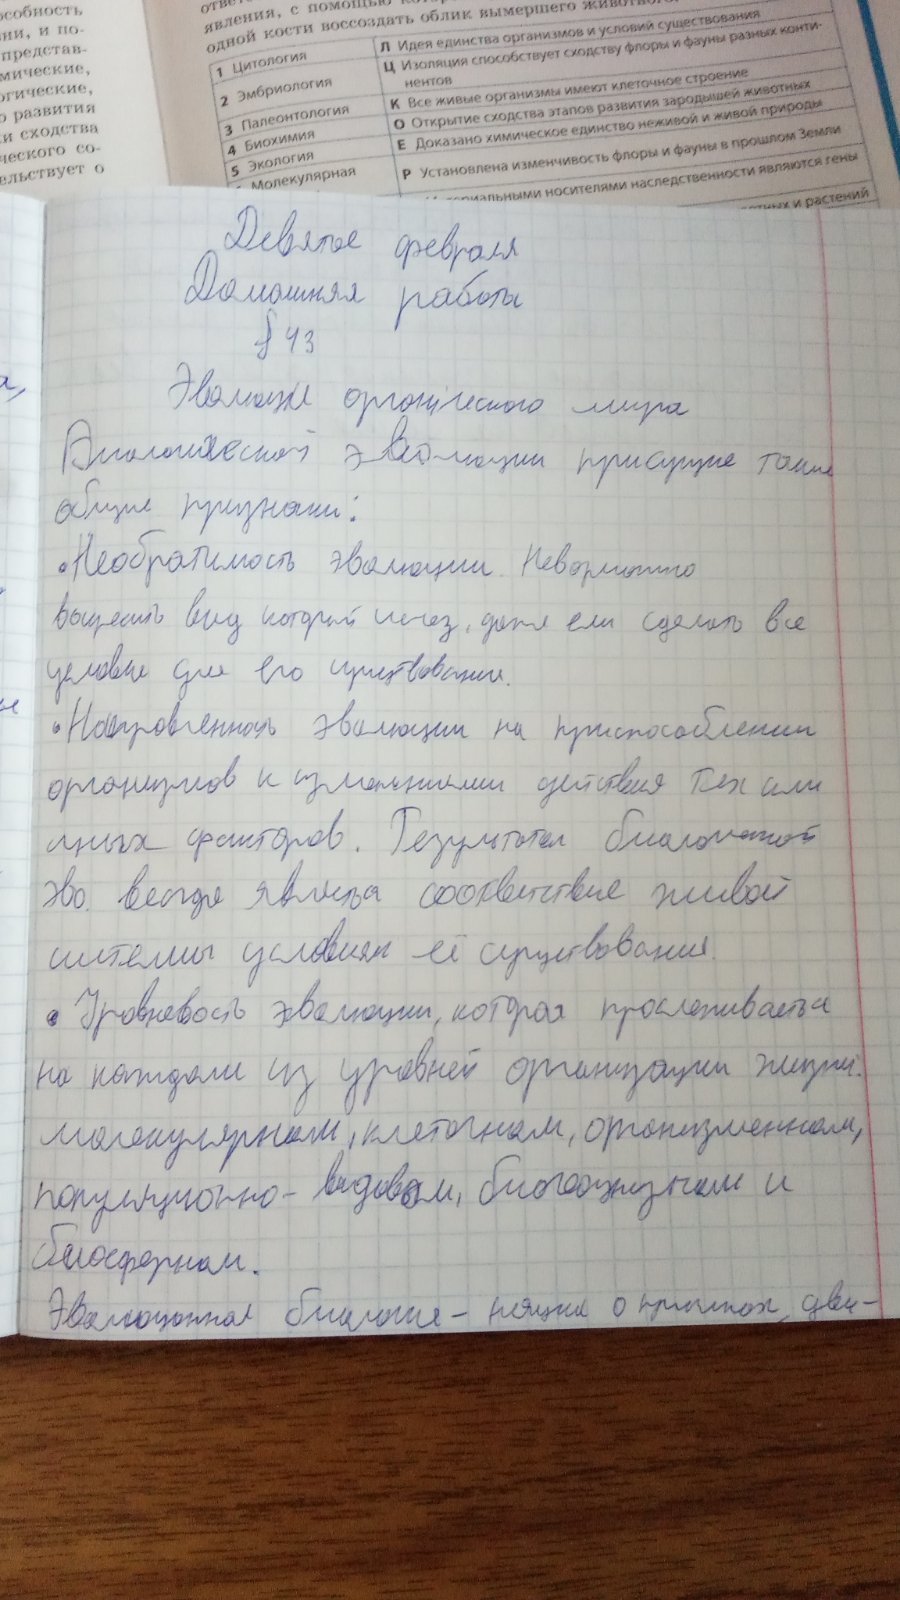 особность
нии, и по-
представ-
мические,
огические,
о развития
ки сходства
ческого со-
ельствует о
явления, с помощью
одной кости воссоздать облик вымершего животного.
1 Цитология
2 Эмбриология
3 Палеонтология
4 Биохимия
5 Экология
Молекулярная
Л Идея единства организмов и условий существования
Ц Изоляция способствует сходству флоры и фауны разных конти-
нентов
К Все живые организмы имеют клеточное строение
О Открытие сходства этапов развития зародышей животных
Е Доказано химическое единство неживой и живой природы
Р Установлена изменчивость флоры и фауны в прошлом Земли
носителями наследственности являются гены
и растений
Девятое февраля
Домашняя работа
§ 43
Эволюция органического мира
Биологической эволюции присущие такие
общие признаки:
• Необратимость эволюции. Невозможно
вид который исчез, даже если сделать все
условие для его существования.
• Направленность эволюции на приспособлении
организмов к действия тех или
иных факторов. Результатом биологической
эво. всегда является соответствие живой
системы условиям её существования.
• Уровневость эволюции, которая прослеживается
на каждом из уровней организации жизни:
молекулярном, клеточном, организменном,
популяционно-видовом, биогеоценозном и
биосферном.
Эволюционная биология - о причинах, дви-